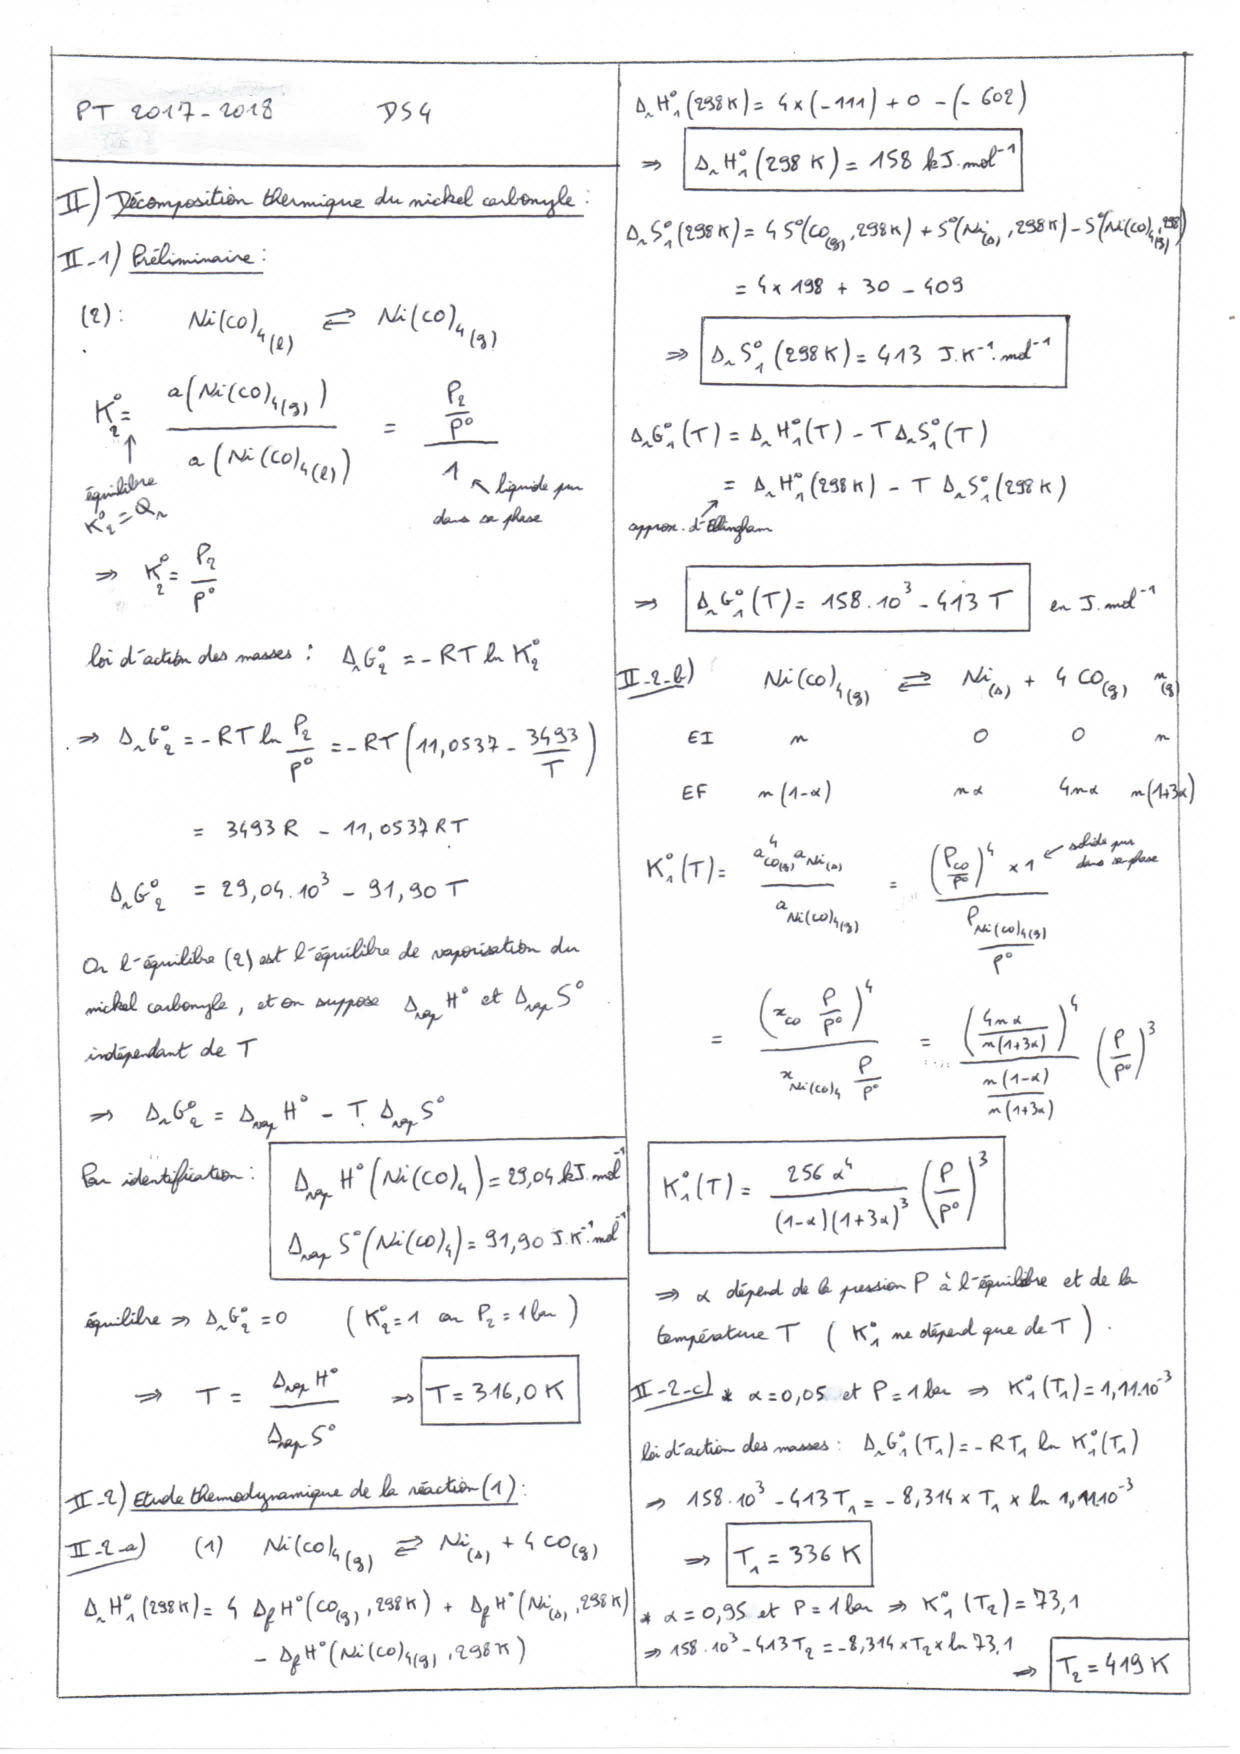 PT 2017-2018 DS4
II) Décomposition thermique du nickel carbonyle :
II-1) Préliminaire :
(2) : Ni(CO)₄(l) ⇄ Ni(CO)₄(g)
K₂° = a(Ni(CO)₄(g)) / a(Ni(CO)₄(l)) = (P₂/P°) / 1
équilibre K₂° = Qr
liquide pur dans sa phase
⇒ K₂° = P₂/P°
loi d'action des masses : ΔrG₂° = -RT ln K₂°
⇒ ΔrG₂° = -RT ln P₂/P° = -RT (11,0537 - 3493/T)
= 3493 R - 11,0537 RT
ΔrG₂° = 29,04.10³ - 91,90 T
Or l'équilibre (2) est l'équilibre de vaporisation du
nickel carbonyle, et on suppose ΔvapH° et ΔvapS°
indépendant de T
⇒ ΔrG₂° = ΔvapH° - T.ΔvapS°
Par identification : ΔvapH°(Ni(CO)₄) = 29,04 kJ.mol⁻¹
ΔvapS°(Ni(CO)₄) = 91,90 J.K⁻¹.mol⁻¹
équilibre ⇒ ΔrG₂° = 0 (K₂° = 1 car P₂ = 1 bar)
⇒ T = ΔvapH° / ΔvapS° ⇒ T = 316,0 K
II-2) Etude thermodynamique de la réaction (1) :
II-2-a) (1) Ni(CO)₄(g) ⇄ Ni(s) + 4 CO(g)
ΔrH₁°(298K) = 4 ΔfH°(CO(g), 298K) + ΔfH°(Ni(s), 298K)
- ΔfH°(Ni(CO)₄(g), 298K)
ΔrH₁°(298K) = 4×(-111) + 0 - (-602)
⇒ ΔrH₁°(298 K) = 158 kJ.mol⁻¹
ΔrS₁°(298K) = 4 S°(CO(g), 298K) + S°(Ni(s), 298K) - S°(Ni(CO)₄(g), 298)
= 4×198 + 30 - 409
⇒ ΔrS₁°(298K) = 413 J.K⁻¹.mol⁻¹
ΔrG₁°(T) = ΔrH₁°(T) - TΔrS₁°(T)
= ΔrH₁°(298K) - T ΔrS₁°(298K)
approx. d'Ellingham
⇒ ΔrG₁°(T) = 158.10³ - 413 T en J.mol⁻¹
II-2-b) Ni(CO)₄(g) ⇄ Ni(s) + 4 CO(g) n(g)
EI n 0 0 n
EF n(1-α) nα 4nα n(1+3α)
K₁°(T) = a⁴CO(g) aNi(s) / aNi(CO)₄(g) = ((PCO/P°)⁴ × 1) / (PNi(CO)₄(g)/P°)
solide pur dans sa phase
= (xCO P/P°)⁴ / (xNi(CO)₄ P/P°) = (4nα / n(1+3α))⁴ / (n(1-α) / n(1+3α)) (P/P°)³
K₁°(T) = 256 α⁴ / ((1-α)(1+3α)³) (P/P°)³
⇒ α dépend de la pression P à l'équilibre et de la
température T (K₁° ne dépend que de T).
II-2-c) * α=0,05 et P=1 bar ⇒ K₁°(T₁) = 1,11.10⁻³
loi d'action des masses : ΔrG₁°(T₁) = -RT₁ ln K₁°(T₁)
⇒ 158.10³ - 413 T₁ = -8,314 × T₁ × ln 1,11.10⁻³
⇒ T₁ = 336 K
* α=0,95 et P=1 bar ⇒ K₁°(T₂) = 73,1
⇒ 158.10³ - 413 T₂ = -8,314 × T₂ × ln 73,1
⇒ T₂ = 419 K